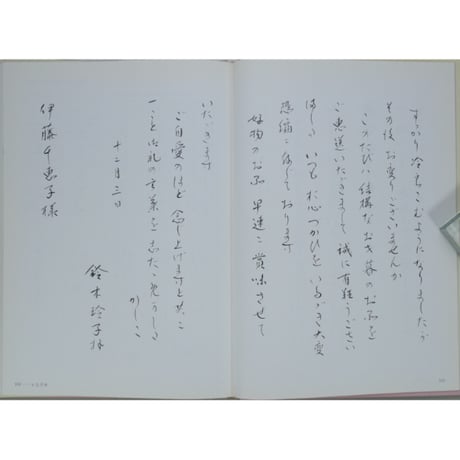 すっかり冷えこむようになりましたが
その後 お変りございませんか
このたびは 結構な お歳暮のお品を
ご恵送いただきまして 誠に有難うござい
ました いつも お心づかひを いただき 大変
恐縮に存じております
好物のお品 早速ご賞味させて
いただきます
ご自愛のほど 念じ上げますと共に
一こと御礼の言葉を したため
かしこ
十二月三日
鈴木玲子
伊藤千恵子様